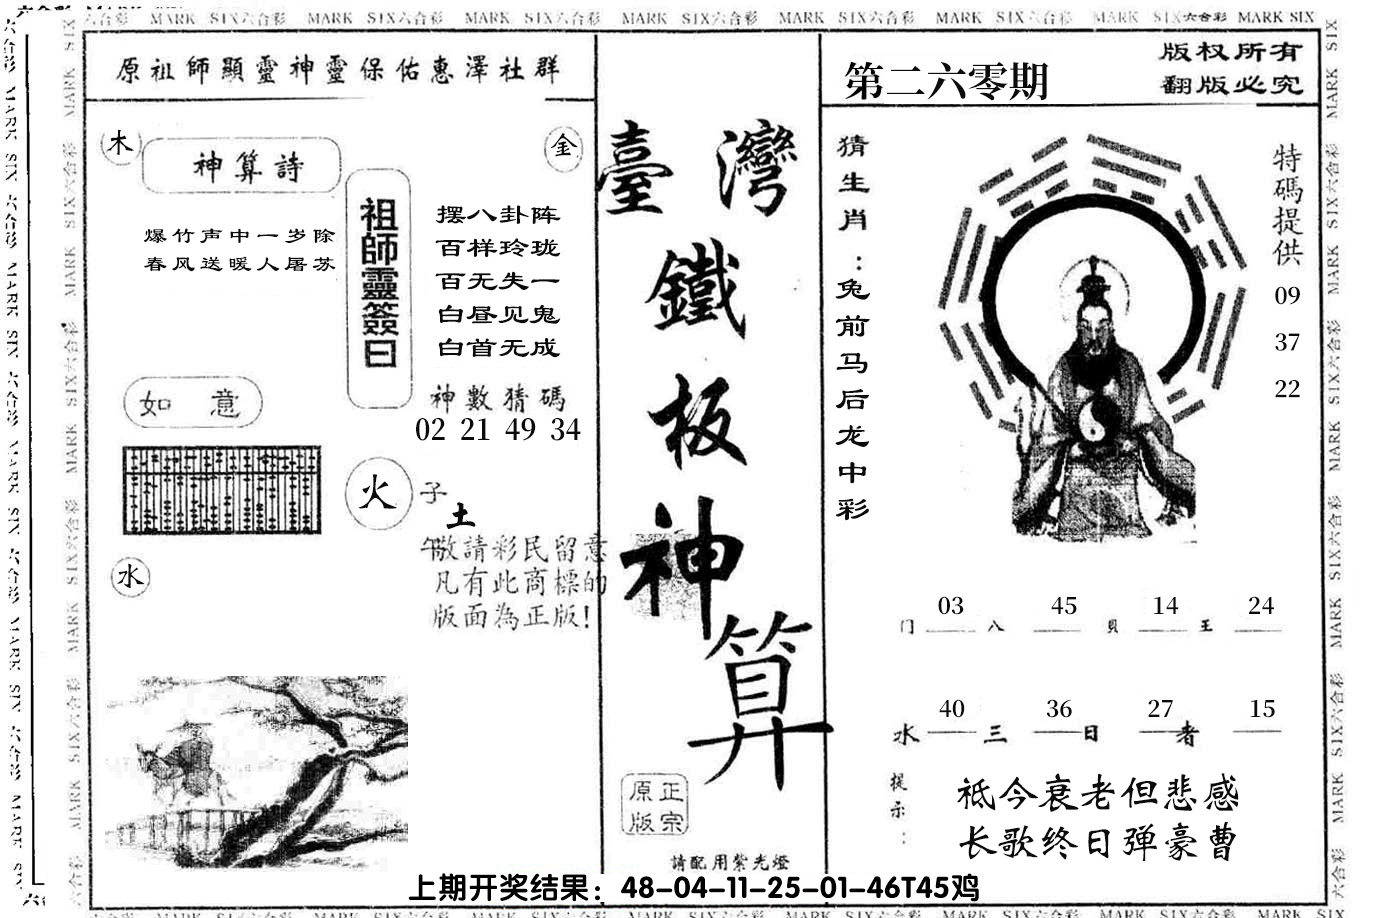 MARK SIX六合彩 MARK SIX六合彩 MARK SIX六合彩 MARK SIX六合彩 MARK SIX六合彩 MARK SIX六合彩 MARK SIX六合彩 MARK SIX
原祖師顯靈神靈保佑惠澤社群
木
神算詩
金
爆竹声中一岁除
春风送暖人屠苏
祖師靈簽曰
摆八卦阵
百样玲珑
百无失一
白昼见鬼
白首无成
神數猜碼
02 21 49 34
如意
火
子
土
午
水
敬請彩民留意
凡有此商標的
版面為正版!
臺灣
鐵
板
神
算
正宗
原版
請配用紫光燈
第二六零期
版权所有
翻版必究
猜生肖：兔前马后龙中彩
特碼提供
09
37
22
03 45 14 24
门 八 貝 王
40 36 27 15
水 三 日 者
提示：
祗今衰老但悲感
长歌终日弹豪曹
上期开奖结果：48-04-11-25-01-46T45鸡